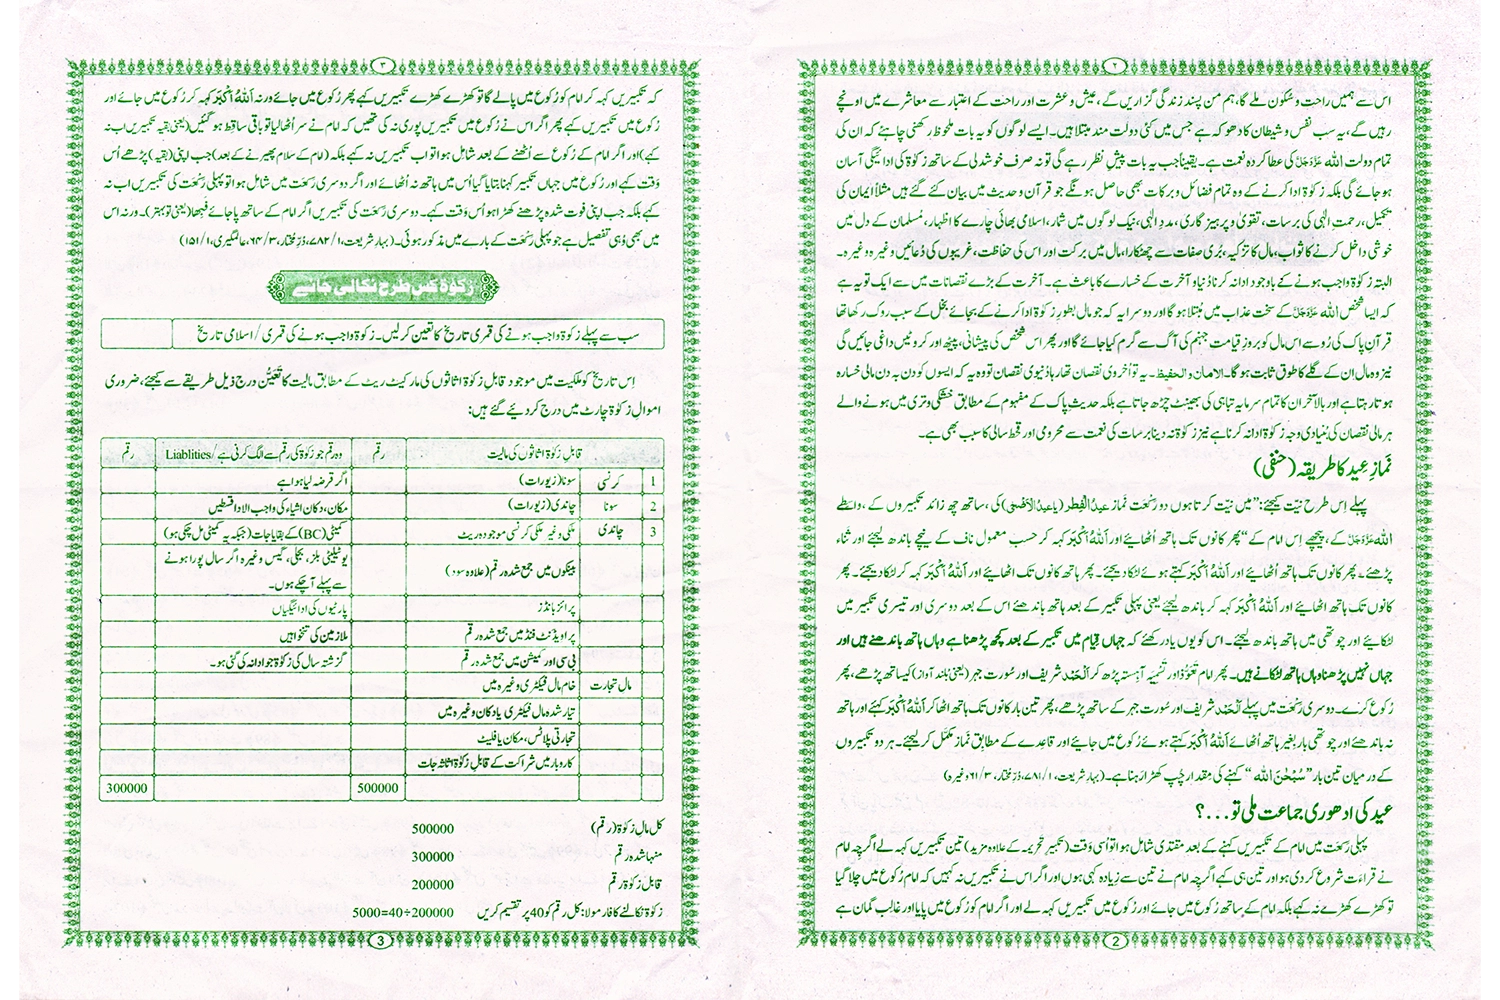 ۲
اس سے ہمیں راحت و سُکون ملے گا، ہم من پسند زندگی گزاریں گے، عیش و عشرت اور راحت کے اعتبار سے معاشرے میں اونچے
رہیں گے، یہ سب نفس و شیطان کا دھوکہ ہے جس میں کئی دولت مند مبتلا ہیں۔ ایسے لوگوں کو یہ بات ملحوظ رکھنی چاہئے کہ ان کی
تمام دولت اللہ عَزَّوَجَلَّ کی عطا کردہ نعمت ہے۔ یقیناً جب یہ بات پیش نظر رہے گی تو نہ صرف خوشدلی کے ساتھ زکوٰۃ کی ادائیگی آسان
ہو جائے گی بلکہ زکوٰۃ ادا کرنے کے وہ تمام فضائل و برکات بھی حاصل ہونگے جو قرآن و حدیث میں بیان کئے گئے ہیں مثلاً ایمان کی
تکمیل، رحمتِ الٰہی کی برسات، تقویٰ و پرہیز گاری، مددِ الٰہی، نیک لوگوں میں شمار، اسلامی بھائی چارے کا اظہار، مُسلمان کے دل میں
خوشی داخل کرنے کا ثواب، مال کا تزکیہ، بُری صفات سے چھٹکارا، مال میں برکت اور اس کی حفاظت، غریبوں کی دُعائیں وغیرہ وغیرہ۔
البتہ زکوٰۃ واجب ہونے کے باوجود ادا نہ کرنا دُنیا و آخرت کے خسارے کا باعث ہے۔ آخرت کے بڑے نقصانات میں سے ایک تو یہ ہے
کہ ایسا شخص اللہ عَزَّوَجَلَّ کے سخت عذاب میں مُبتلا ہوگا اور دوسرا یہ کہ جو مال بطورِ زکوٰۃ ادا کرنے کے بجائے بخل کے سبب روک رکھا تھا
قرآنِ پاک کی رُو سے اس مال کو بروزِ قیامت جہنم کی آگ سے گرم کیا جائے گا اور پھر اس شخص کی پیشانی، پیٹھ اور کروٹیں داغی جائیں گی
نیز وہ مال ان کے گلے کا طوق ثابت ہوگا۔ الامان والحفیظ۔ یہ تو اُخروی نقصان تھا، رہا دُنیوی نقصان تو وہ یہ کہ ایسوں کو دن بہ دن مالی خسارہ
ہوتا رہتا ہے اور بالآخر ان کا تمام سرمایہ تباہی کی بھینٹ چڑھ جاتا ہے بلکہ حدیثِ پاک کے مفہوم کے مطابق خشکی و تری میں ہونے والے
ہر مالی نقصان کی بُنیادی وجہ زکوٰۃ ادا نہ کرنا ہے نیز زکوٰۃ نہ دینا برسات کی نعمت سے محرومی اور قحط سالی کا سبب بھی ہے۔
نمازِ عید کا طریقہ (حنفی)
پہلے اِس طرح نیّت کیجئے: ”میں نیّت کرتا ہوں دو رَکعت نَماز عیدُ الفِطر (یا عیدُ الاَضحی) کی، ساتھ چھ زائد تکبیروں کے، واسطے
اللہ عَزَّوَجَلَّ کے، پیچھے اِس امام کے“ پھر کانوں تک ہاتھ اُٹھائیے اور اَللّٰہُ اَکْبَر کہہ کر حسبِ معمول ناف کے نیچے باندھ لیجئے اور ثَناء
پڑھئے۔ پھر کانوں تک ہاتھ اُٹھائیے اور اَللّٰہُ اَکْبَر کہتے ہوئے لٹکا دیجئے۔ پھر ہاتھ کانوں تک اٹھائیے اور اَللّٰہُ اَکْبَر کہہ کر لٹکا دیجئے۔ پھر
کانوں تک ہاتھ اٹھائیے اور اَللّٰہُ اَکْبَر کہہ کر باندھ لیجئے یعنی پہلی تکبیر کے بعد ہاتھ باندھئے اس کے بعد دوسری اور تیسری تکبیر میں
لٹکائیے اور چوتھی میں ہاتھ باندھ لیجئے۔ اس کو یوں یاد رکھئے کہ جہاں قِیام میں تکبیر کے بعد کچھ پڑھنا ہے وہاں ہاتھ باندھنے ہیں اور
جہاں نہیں پڑھنا وہاں ہاتھ لٹکانے ہیں۔ پھر امام تَعَوُّذ اور تَسْمِیَہ آہستہ پڑھ کر اَلْحَمْد شریف اور سُورت جہر (یعنی بُلند آواز) کیساتھ پڑھے، پھر
رُکوع کرے۔ دوسری رَکعت میں پہلے اَلْحَمْد شریف اور سُورت جہر کے ساتھ پڑھے، پھر تین بار کانوں تک ہاتھ اٹھا کر اَللّٰہُ اَکْبَر کہئے اور ہاتھ
نہ باندھئے اور چوتھی بار بغیر ہاتھ اُٹھائے اَللّٰہُ اَکْبَر کہتے ہوئے رُکوع میں جائیے اور قاعِدے کے مطابق نَماز مکمّل کر لیجئے۔ ہر دو تکبیروں
کے درمیان تین بار ”سُبْحٰنَ اللہ“ کہنے کی مِقدار چُپ کھڑا رَہنا ہے۔ (بہارِ شریعت، ۷۸۱/۱، دُرِّ مُختار، ۶۱/۳ وغیرہ)
عید کی ادھوری جماعت ملی تو...؟
پہلی رَکعت میں امام کے تکبیریں کہنے کے بعد مقتدی شامِل ہوا تو اُسی وَقت (تکبیرِ تحریمہ کے علاوہ مزید) تین تکبیریں کہہ لے اگرچِہ امام
نے قراءَت شروع کر دی ہو اور تین ہی کہے اگرچِہ امام نے تین سے زیادہ کہی ہوں اور اگر اس نے تکبیریں نہ کہیں کہ امام رُکوع میں چلا گیا
تو کھڑے کھڑے نہ کہے بلکہ امام کے ساتھ رُکوع میں جائے اور رُکوع میں تکبیریں کہہ لے اور اگر امام کو رُکوع میں پایا اور غالِب گمان ہے
2
۳
کہ تکبیریں کہہ کر امام کو رُکوع میں پالے گا تو کھڑے کھڑے تکبیریں کہے پھر رُکوع میں جائے ورنہ اَللّٰہُ اَکْبَر کہہ کر رُکوع میں جائے اور
رُکوع میں تکبیریں کہے پھر اگر اس نے رُکوع میں تکبیریں پوری نہ کی تھیں کہ امام نے سر اُٹھا لیا تو باقی ساقِط ہوگئیں (یعنی بقیہ تکبیریں اب نہ
کہے) اور اگر امام کے رُکوع سے اُٹھنے کے بعد شامل ہوا تو اب تکبیریں نہ کہے بلکہ (امام کے سلام پھیرنے کے بعد) جب اپنی (بقیہ) پڑھے اُس
وَقت کہے اور رُکوع میں جہاں تکبیر کہنا بتایا گیا اُس میں ہاتھ نہ اُٹھائے اور اگر دوسری رکعت میں شامل ہوا تو پہلی رَکعت کی تکبیریں اب نہ
کہے بلکہ جب اپنی فوت شدہ پڑھنے کھڑا ہو اُس وقت کہے۔ دوسری رَکعت کی تکبیریں اگر امام کے ساتھ پا جائے فَبِھا (یعنی تو بہتر)۔ ورنہ اس
میں بھی وُہی تفصیل ہے جو پہلی رَکعت کے بارے میں مذکور ہوئی۔ (بہارِ شریعت، ۷۸۲/۱، دُرِّ مُختار، ۶۴/۳، عالمگیری، ۱۵۱/۱)
زکوٰۃ کس طرح نکالی جائے
سب سے پہلے زکوٰۃ واجب ہونے کی قمری تاریخ کا تعین کرلیں۔ زکوٰۃ واجب ہونے کی قمری / اسلامی تاریخ
اِس تاریخ کو ملکیت میں موجود قابلِ زکوٰۃ اثاثوں کی مارکیٹ ریٹ کے مطابق مالیت کا تَعَیُّن درج ذیل طریقے سے کیجئے، ضروری
اموالِ زکوٰۃ چارٹ میں درج کر دیئے گئے ہیں:
قابلِ زکوٰۃ اثاثوں کی مالیت رقم وہ رقم جو زکوٰۃ کی رقم سے الگ کرنی ہے/ Liablities رقم
1 کرنسی سونا (زیورات) اگر قرضہ لیا ہوا ہے
2 سونا چاندی (زیورات) مکان، دکان اشیاء کی واجب الادا قسطیں
3 چاندی ملکی و غیر ملکی کرنسی موجودہ ریٹ کمیٹی (BC) کے بقایا جات (جبکہ یہ کمیٹی مل چکی ہو)
بینکوں میں جمع شدہ رقم (علاوہ سود) یوٹیلیٹی بلز، بجلی، گیس وغیرہ اگر سال پورا ہونے
سے پہلے آچکے ہوں۔
پرائز بانڈز پارٹیوں کی ادائیگیاں
پراویڈنٹ فنڈ میں جمع شدہ رقم ملازمین کی تنخواہیں
بی سی اور کمیشن میں جمع شدہ رقم گزشتہ سال کی زکوٰۃ جو ادا نہ کی گئی ہو۔
مال تجارت خام مال فیکٹری وغیرہ میں
تیار شدہ مال فیکٹری یا دکان وغیرہ میں
تجارتی پلاٹس، مکان یا فلیٹ
کاروبار میں شراکت کے قابلِ زکوٰۃ اثاثہ جات
500000 300000
کل مالِ زکوٰۃ (رقم) 500000
منہا شدہ رقم 300000
قابل زکوٰۃ رقم 200000
زکوٰۃ نکالنے کا فارمولا: کل رقم کو 40 پر تقسیم کریں 5000=40÷200000
3